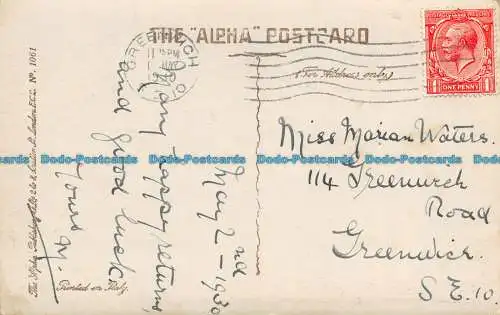 THE "ALPHA" POSTCARD
For Address only
GREENWICH
PM
ONE PENNY
May 2nd - 1930
Many happy returns,
and good luck
Yours M.
Miss Marian Waters.
114 Greenwich
Road
Greenwich.
S.E. 10.
Printed in Italy.
The Alpha Publishing Co. Ltd. London E.C.2. No. 1061
Dodo-Postcards Dodo-Postcards Dodo-Postcards Dodo-Postcards Dodo-Postcards